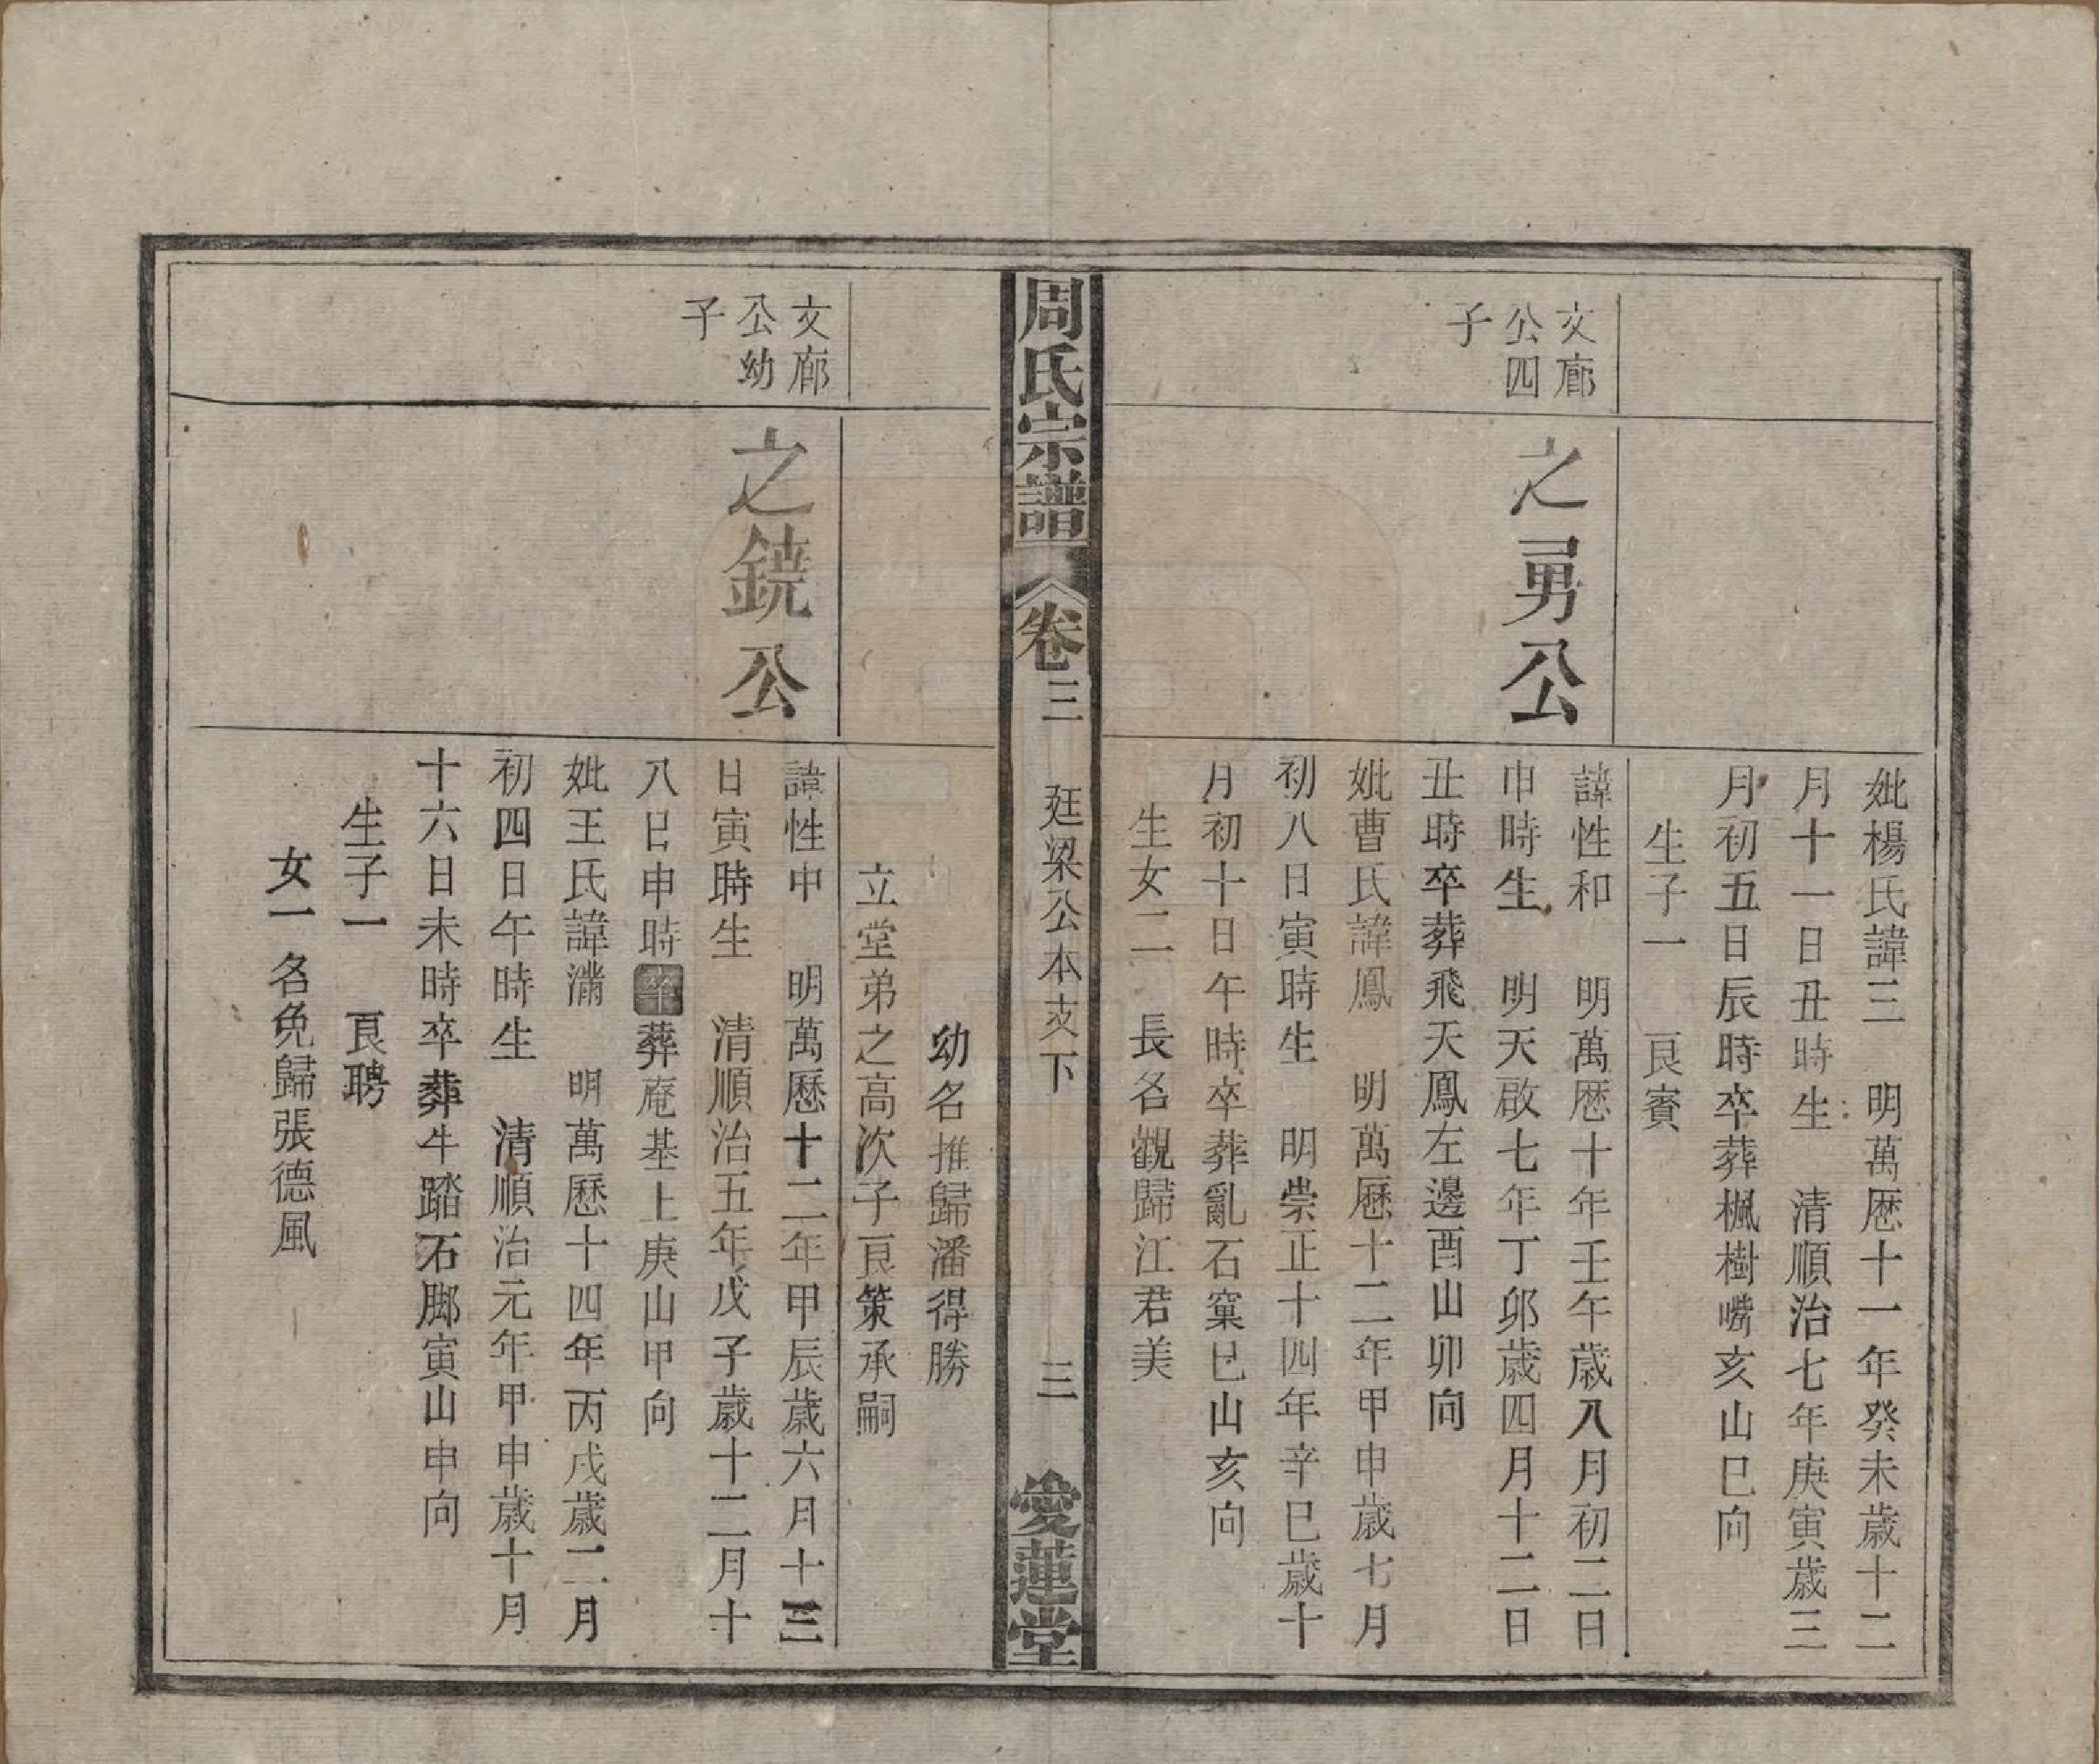 妣楊氏諱三　明萬厯十一年癸未歲十二
月十一日丑時生　清順治七年庚寅歲三
月初五日辰時卒葬楓樹嘴亥山巳向
生子一　良賓
文廊
公四
子
之勇公
諱性和　明萬厯十年壬午歲八月初二日
申時生　明天啟七年丁卯歲四月十二日
丑時卒葬飛天鳳左邊酉山卯向
妣曹氏諱鳳　明萬厯十二年甲申歲七月
初八日寅時生　明崇正十四年辛巳歲十
月初十日午時卒葬亂石窠巳山亥向
生女二　長名觀歸江君美
周氏宗譜
卷三
廷梁公本支下
三
愛蓮堂
幼名推歸潘得勝
立堂弟之高次子良策承嗣
文廊
公幼
子
之鐃公
諱性中　明萬厯十二年甲辰歲六月十三
日寅時生　清順治五年戊子歲十二月十
八日申時卒葬庵基上庚山甲向
妣王氏諱滿　明萬厯十四年丙戌歲二月
初四日午時生　清順治元年甲申歲十月
十六日未時卒葬牛踏石脚寅山申向
生子一　良聘
女一　名免歸張德風